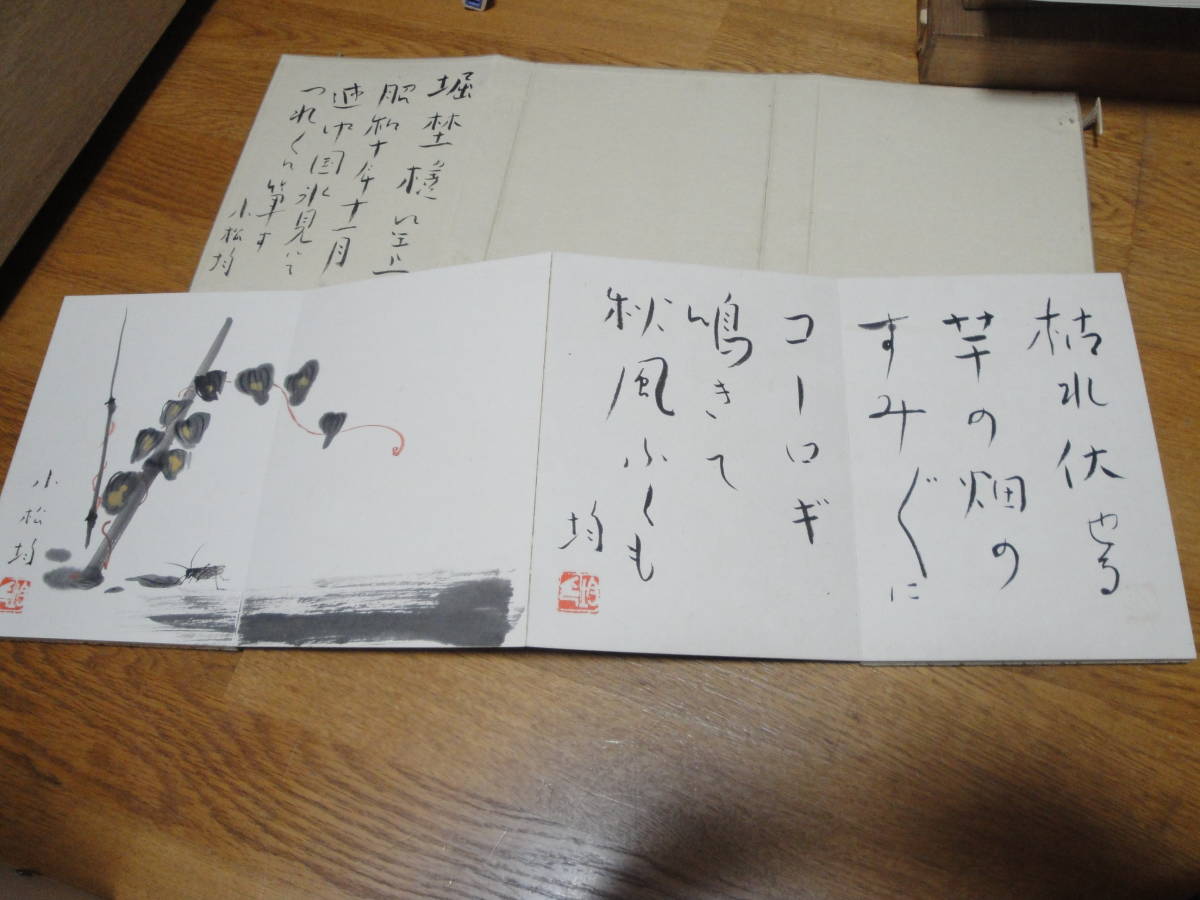 堀埜様に呈上
昭和十年十一月
越中国氷見にて
つれ〲に筆す
小松均
枯れ伏せる
芋の畑の
すみ〲に
コーロギ
鳴きて
秋風ふくも
均
小松均